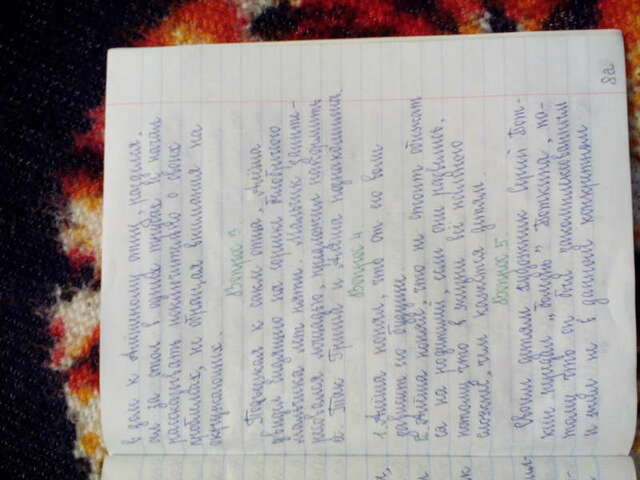 в дом к Алёшиному отцу, разделся,
сел за стол в одних трусах и начал
рассказывать исключительно о своих
проблемах, не обращая внимания на
окружающих.
Вопрос 3.
Подъезжая к сакле отца, Алёша
увидел сидящего на горшке белобрысого
мальчика лет пяти. Мальчик заинте-
ресовался лошадью, предложил накормить
её. Так Гриша и Алёша познакомились.
Вопрос 4
1. Алёша понял, что от его воли
зависит его будущее.
2. Алёша понял, что не стоит обижат
ся на родителей, если они развелись,
потому что в жизни всё намного
сложнее, чем кажется детям.
Вопрос 5.
Своим детям художник Сергей Бот-
кин передал „болезнь" Боткина, по-
тому что он был закомплексованным
и жил не в данном конкретном
8а